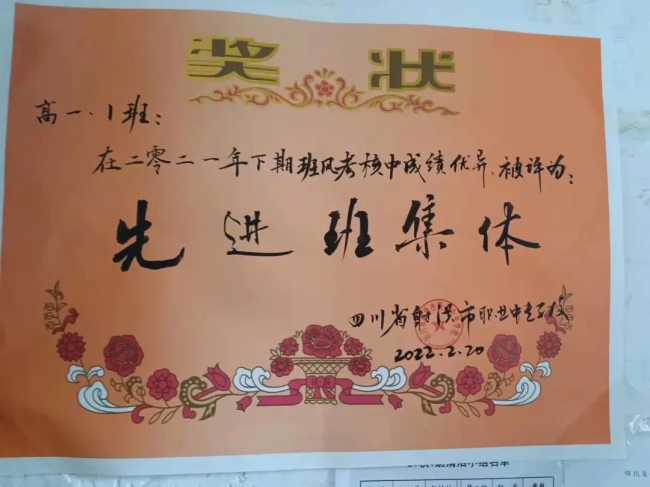 奖状
高一.1班：
在二零二一年下期班风考核中成绩优异、被评为：
先进班集体
四川省射洪市职业中专学校
2022.2.20